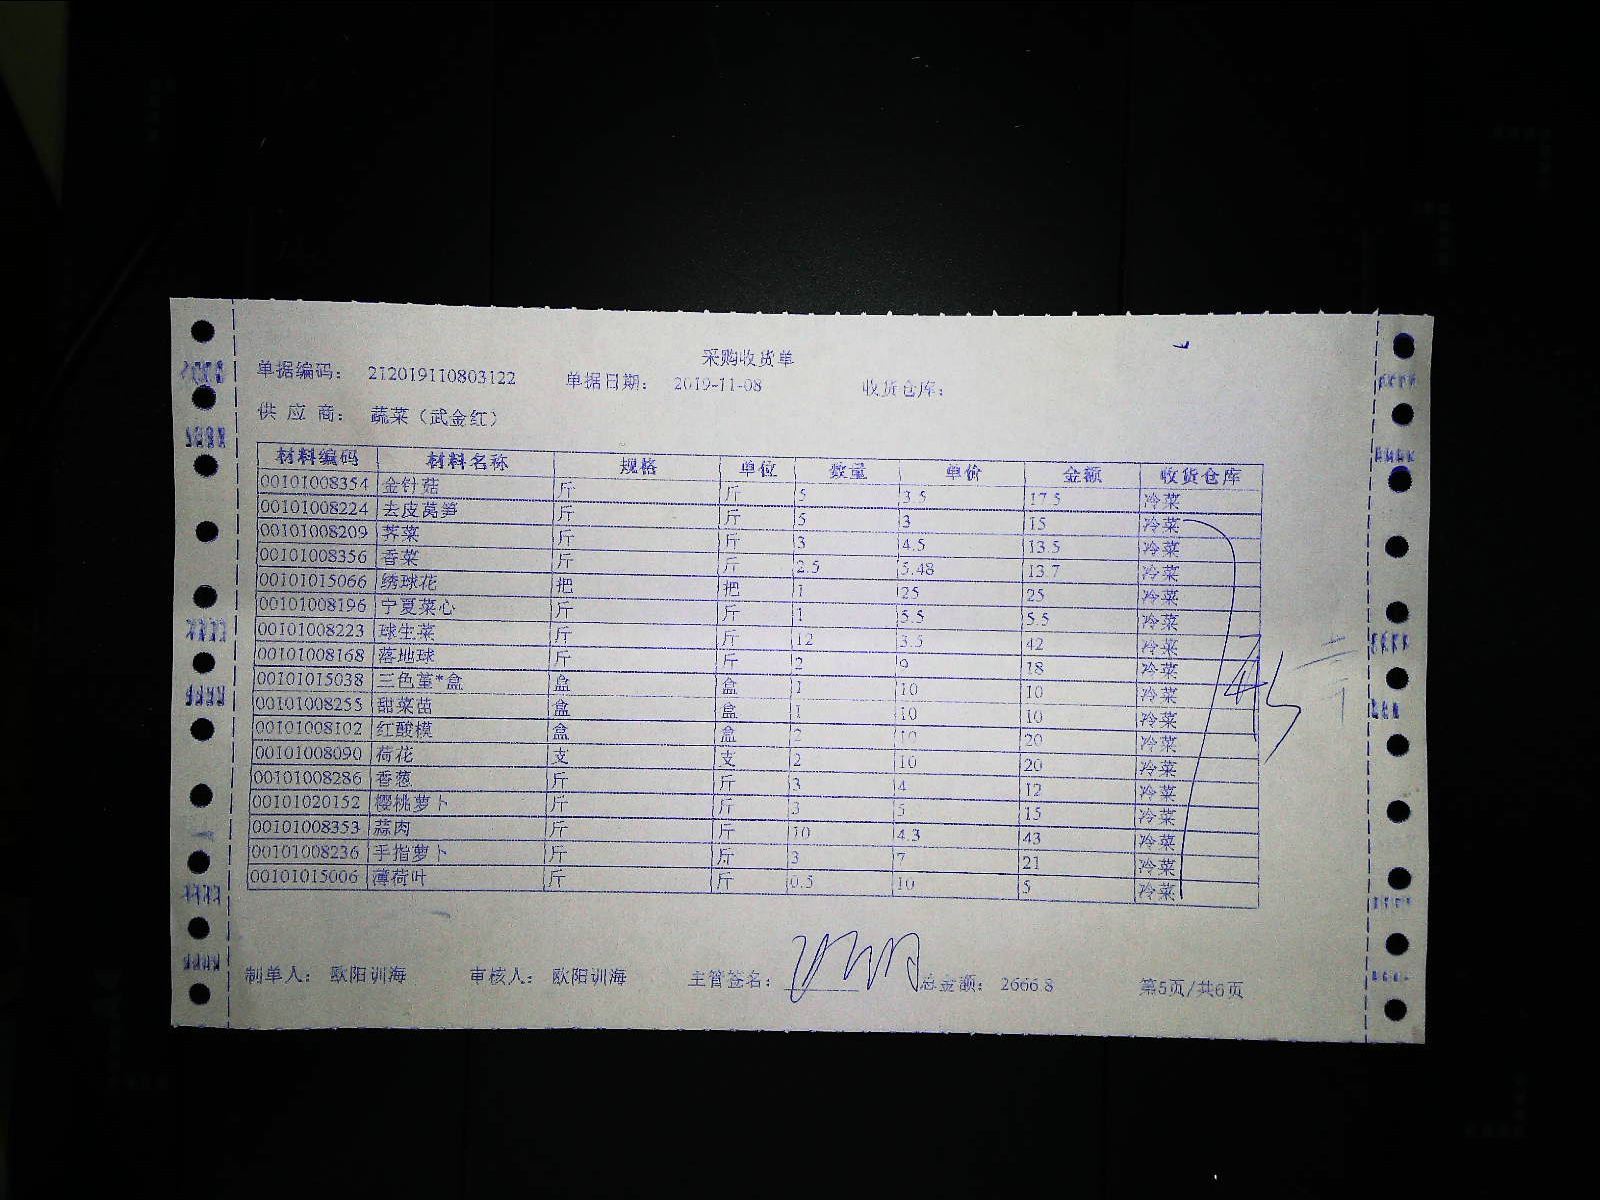 采购收货单
单据编码： 212019110803122 单据日期： 2019-11-08 收货仓库：
供 应 商： 蔬菜（武金红）
材料编码 材料名称 规格 单位 数量 单价 金额 收货仓库
00101008354 金针菇 斤 斤 5 3.5 17.5 冷菜
00101008224 去皮莴笋 斤 斤 5 3 15 冷菜
00101008209 荠菜 斤 斤 3 4.5 13.5 冷菜
00101008356 香菜 斤 斤 2.5 5.48 13.7 冷菜
00101015066 绣球花 把 把 1 25 25 冷菜
00101008196 宁夏菜心 斤 斤 1 5.5 5.5 冷菜
00101008223 球生菜 斤 斤 12 3.5 42 冷菜
00101008168 落地球 斤 斤 2 9 18 冷菜
00101015038 三色堇*盒 盒 盒 1 10 10 冷菜
00101008255 甜菜苗 盒 盒 1 10 10 冷菜
00101008102 红酸模 盒 盒 2 10 20 冷菜
00101008090 荷花 支 支 2 10 20 冷菜
00101008286 香葱 斤 斤 3 4 12 冷菜
00101020152 樱桃萝卜 斤 斤 3 5 15 冷菜
00101008353 蒜肉 斤 斤 10 4.3 43 冷菜
00101008236 手指萝卜 斤 斤 3 7 21 冷菜
00101015006 薄荷叶 斤 斤 0.5 10 5 冷菜
制单人： 欧阳训海 审核人： 欧阳训海 主管签名： 总金额： 2666.8 第5页/共6页